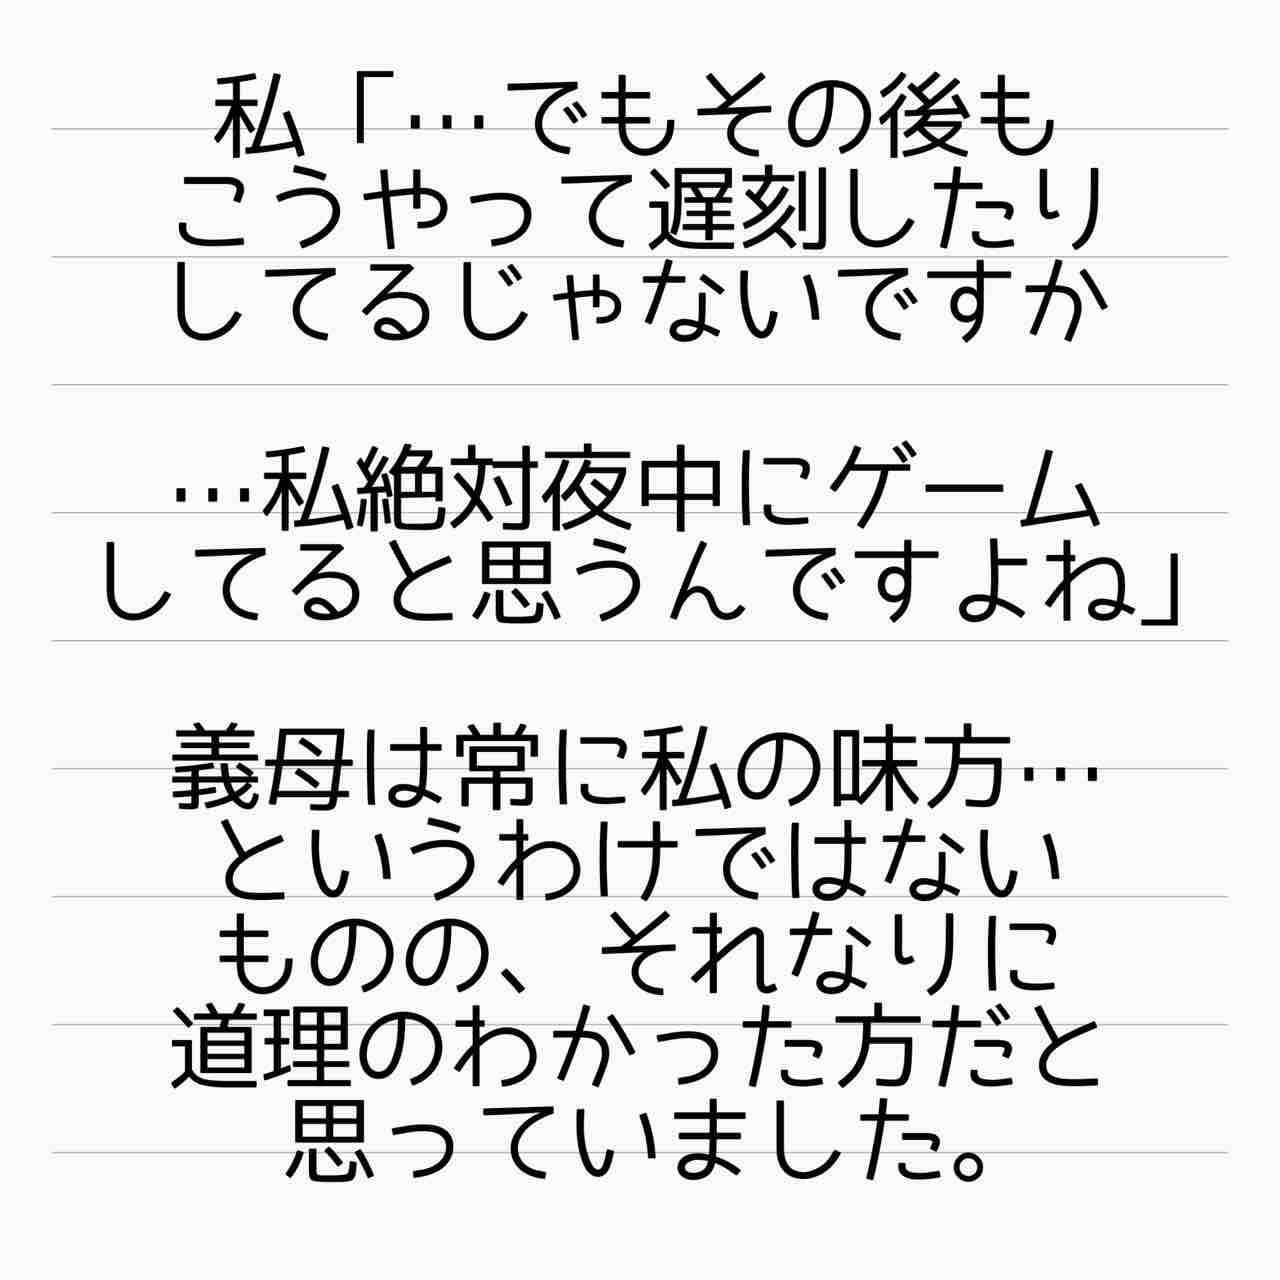 私「…でもその後も
こうやって遅刻したり
してるじゃないですか
…私絶対夜中にゲーム
してると思うんですよね」
義母は常に私の味方…
というわけではない
ものの、それなりに
道理のわかった方だと
思っていました。